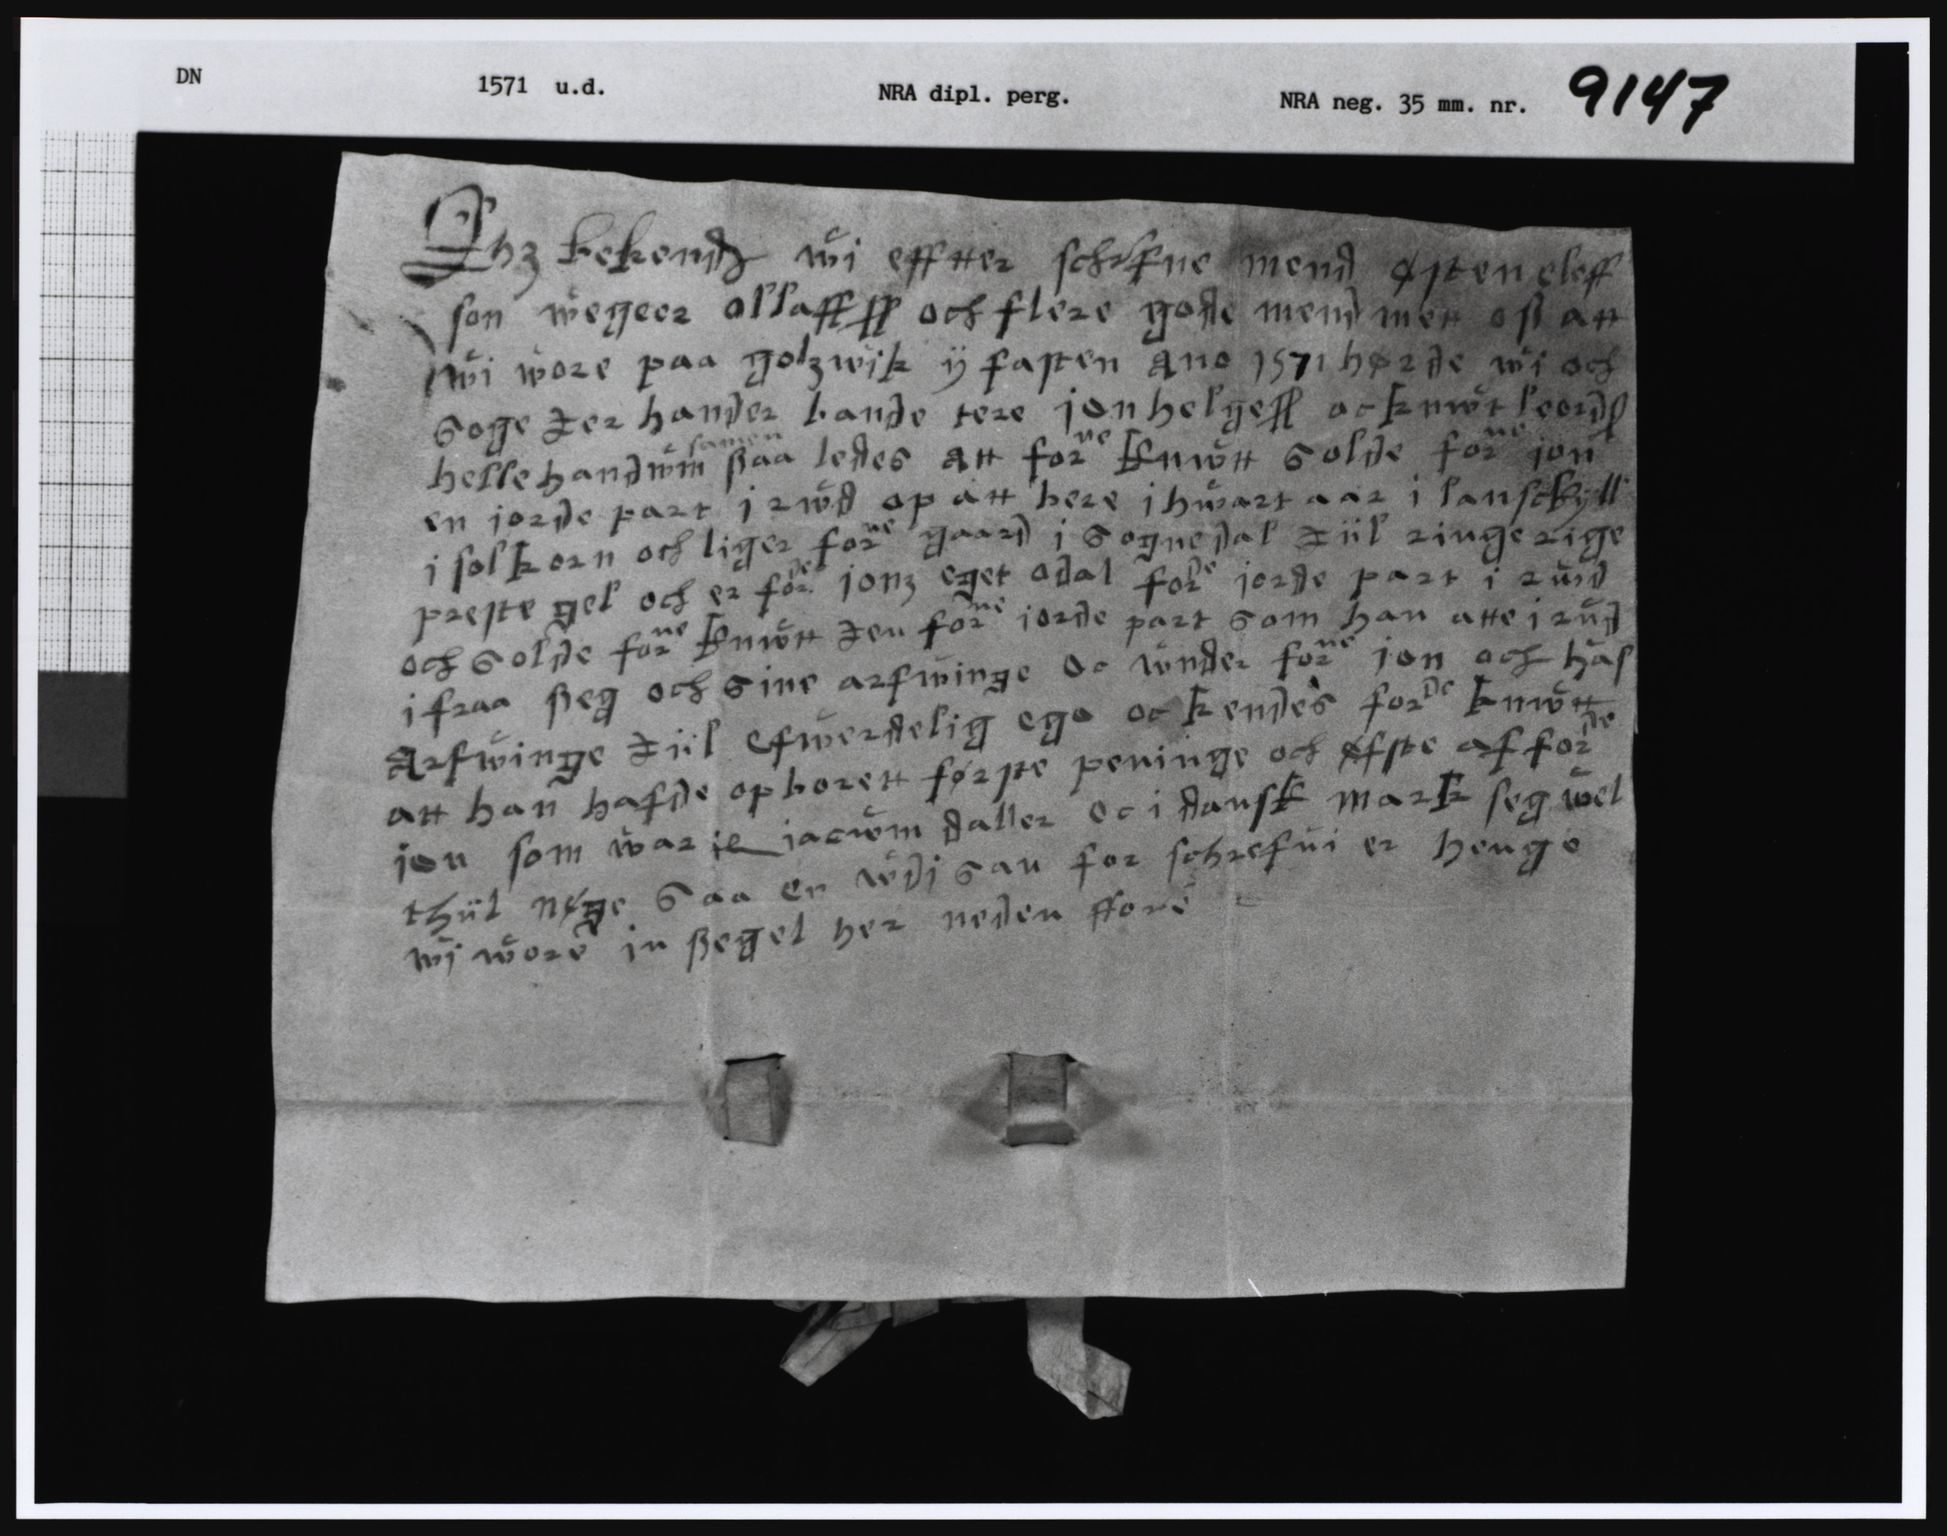 DN 1571 u.d. NRA dipl. perg. NRA neg. 35 mm. nr. 9147
Thz bekendz wi effter schrfne mend østen eleff
son wegeer ollaffss och flere gode mend mett oss att
wi wore paa golzwik ÿ fasten Ano 1571 hørde wi och
soge der hander bande tere jon helgess oc knwt leordss
helle handwm samen saa ledes att forne knwtt solde forne jon
en jorde part i rwd op att bere i hwart aar i lansckyll
i solkorn och liger forne gaard i sognedal tiil ringerige
preste gel och er forde jonz eget odal forde jorde part i rwd
och solde forne knwtt den forne jorde part som han atte i rwd
i fraa seg och sine arfwinge oc wnder forne jon och hās
Arfwinge tiil efwerdelig ego oc kendes forde knwtt
att han hafde opborett første peninge och øfste af forde
jon som war jacwm daller oc i dansk mark seg wel
thiil nøge saa er wdi san for schrefwi er henge
wi wore in segel her neden ffore